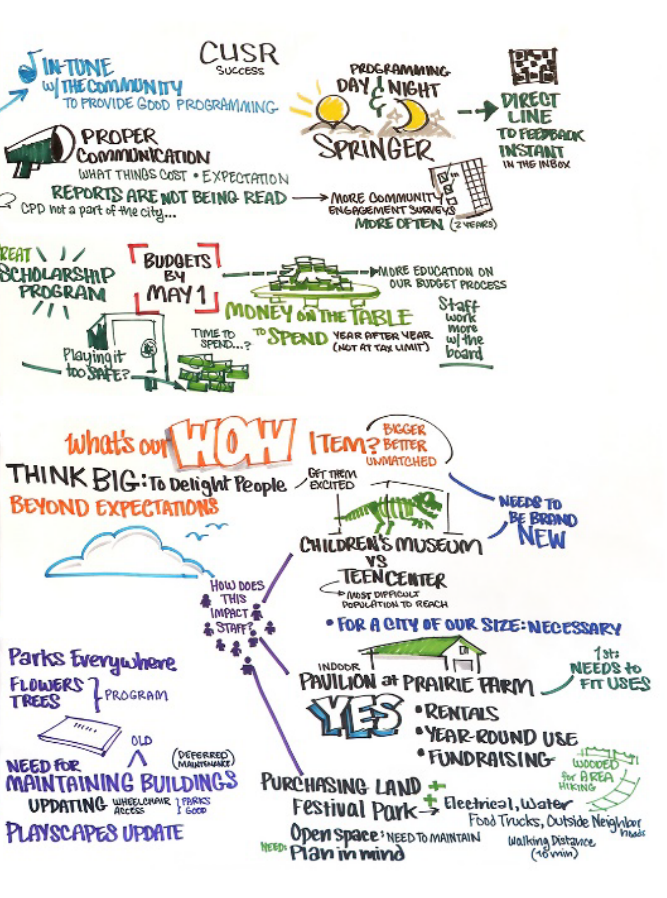 CUSR
SUCCESS
IN-TUNE
w/ THE COMMUNITY
TO PROVIDE GOOD PROGRAMMING
PROGRAMMING
DAY & NIGHT
SPRINGER
DIRECT
LINE
TO FEEDBACK
INSTANT
IN THE INBOX
PROPER
COMMUNICATION
WHAT THINGS COST • EXPECTATION
REPORTS ARE NOT BEING READ
CPD not a part of the city...
MORE COMMUNITY
ENGAGEMENT SURVEYS
MORE OFTEN (2 YEARS)
REAT
SCHOLARSHIP
PROGRAM
BUDGETS
BY
MAY 1
MORE EDUCATION ON
OUR BUDGET PROCESS
MONEY ON THE TABLE
TO SPEND YEAR AFTER YEAR
(NOT AT TAX LIMIT)
Staff
work
more
w/ the
board
Playing it
too SAFE?
TIME TO
SPEND...?
What's our WOW ITEM?
BIGGER
BETTER
UNMATCHED
THINK BIG: To Delight People
GET THEM
EXCITED
BEYOND EXPECTATIONS
NEEDS TO
BE BRAND
NEW
CHILDREN'S MUSEUM
VS
TEEN CENTER
MOST DIFFICULT
POPULATION TO REACH
HOW DOES
THIS
IMPACT
STAFF?
• FOR A CITY OF OUR SIZE: NECESSARY
INDOOR
PAVILION at PRAIRIE FARM
1st:
NEEDS to
FIT USES
YES
• RENTALS
• YEAR-ROUND USE
• FUNDRAISING
Parks Everywhere
FLOWERS
TREES
PROGRAM
OLD
(DEFERRED
MAINTENANCE)
NEED FOR
MAINTAINING BUILDINGS
UPDATING WHEELCHAIR
ACCESS
PARKS
GOOD
PLAYSCAPES UPDATE
WOODED
for AREA
HIKING
PURCHASING LAND +
Festival Park + → Electrical, Water
Food Trucks, Outside Neighbor
hoods
Open space: NEED TO MAINTAIN
NEED: Plan in mind
Walking Distance
(10 min)